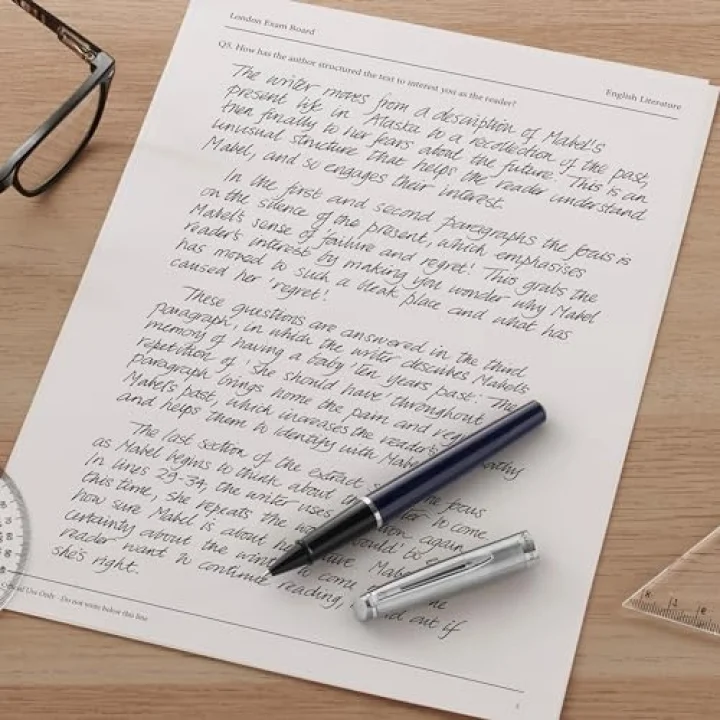 London Exam Board
English Literature
Q3. How has the author structured the text to interest you as the reader?
The writer moves from a description of Mabel's
present life in Alaska to a recollection of the past,
then finally to her fears about the future. This is an
unusual structure that helps the reader understand
Mabel, and so engages their interest.
In the first and second paragraphs the focus is
on the silence of the present, which emphasises
Mabel's sense of 'failure and regret'. This grabs the
reader's interest by making you wonder why Mabel
has moved to such a bleak place and what has
caused her 'regret'.
These questions are answered in the third
paragraph, in which the writer describes Mabel's
memory of having a baby 'ten years past'. The
repetition of 'she should have' throughout
paragraph brings home the pain and
Mabel's past, which increases the reader's
and helps them to identify with Mabel
The last section of the extract the focus
as Mabel begins to think about the to come.
In lines 29-34, the writer uses again.
this time, she repeats the would be
how sure Mabel is about
certainty about the to come
reader want to continue reading, out if
she's right.
Use Only - Do not write below this line